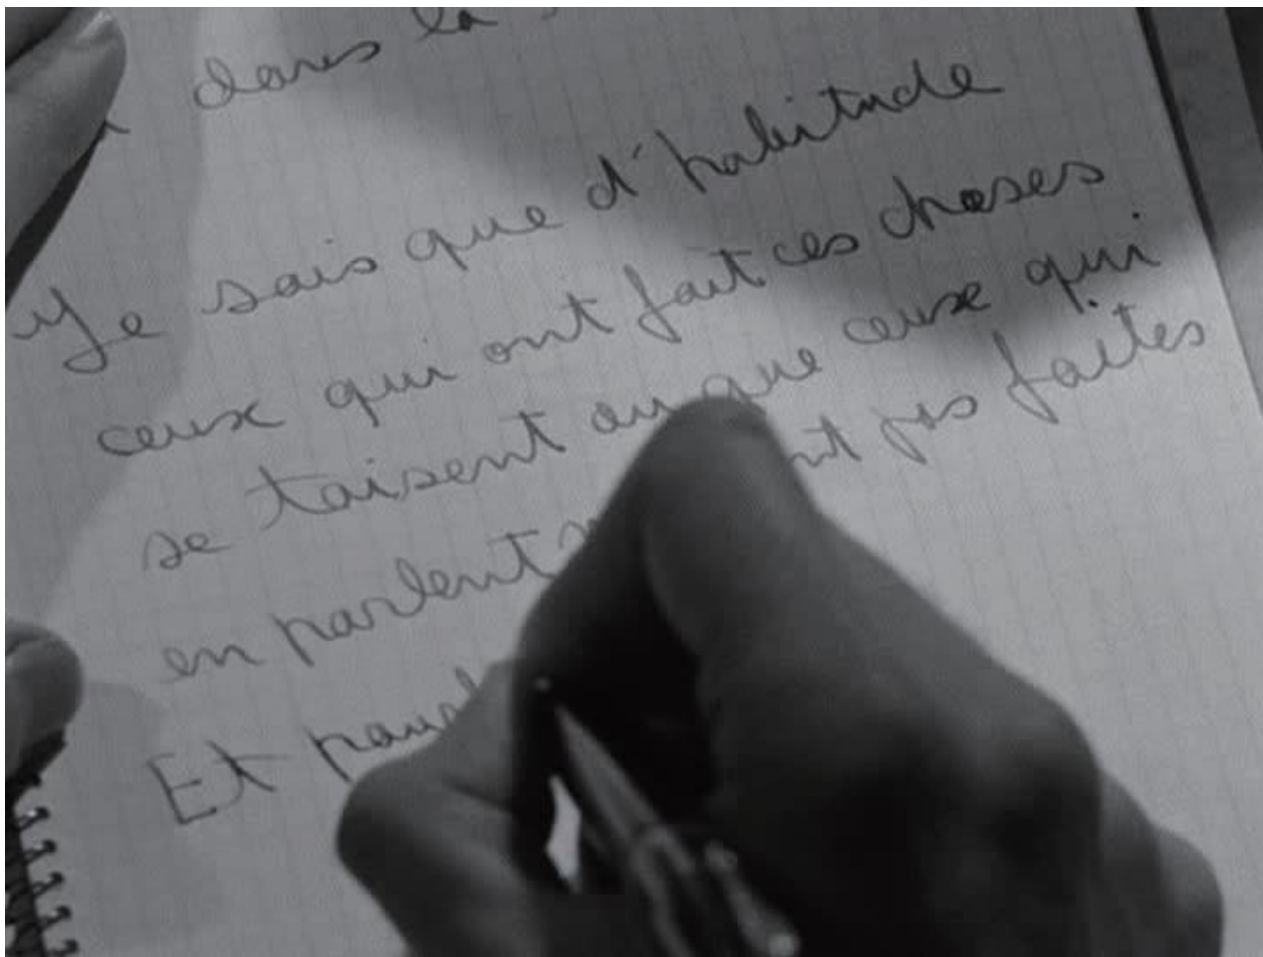 dans la
Je sais que d'habitude
ceux qui ont fait ces choses
se taisent ou que ceux qui
en parlent nt pas faites
Et pour